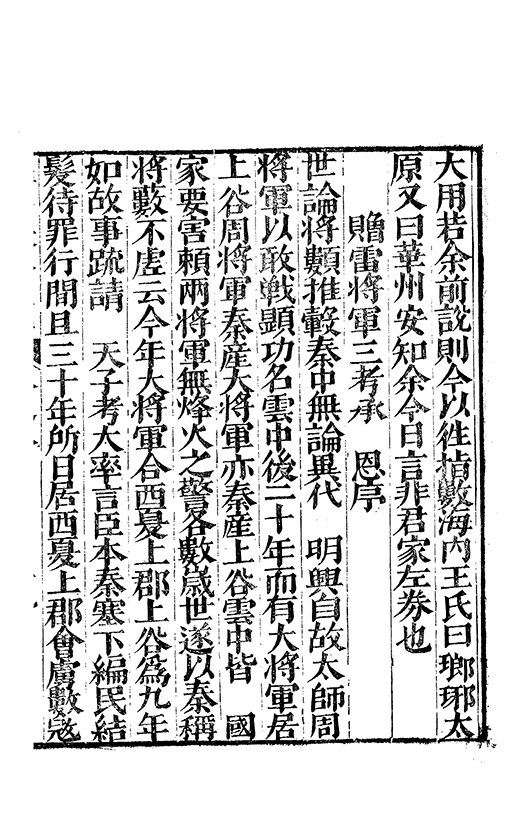 大用若余前說則今以徃指數海內王氏曰瑯琊太
原又曰華州安知余今日言非君家左券也
贈雷將軍三考承　恩序
世論將顥推轂秦中無論異代　明興自故太師周
將軍以敢戰顯功名雲中後二十年而有大將軍居
上谷周將軍秦産大將軍亦秦産上谷雲中皆　國
家要害賴兩將軍無烽火之警各數歲世遂以秦稱
將藪不虛云今年大將軍合西夏上郡上谷爲九年
如故事䟽請　天子考大率言臣本秦塞下編民結
髮待罪行間且三十年所日居西夏上郡會虜數寇